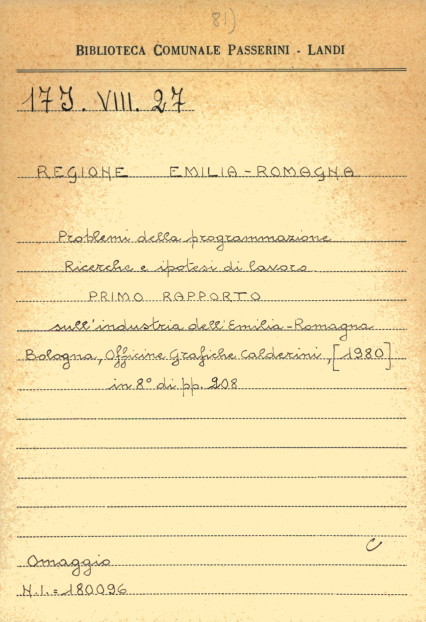 81)
BIBLIOTECA COMUNALE PASSERINI - LANDI
17J. VIII. 27
REGIONE EMILIA-ROMAGNA
Problemi della programmazione
Ricerche e ipotesi di lavoro
PRIMO RAPPORTO
sull'industria dell'Emilia-Romagna
Bologna, Officine Grafiche Calderini, [1980]
in 8° di pp. 208
C
Omaggio
N.I.=180096